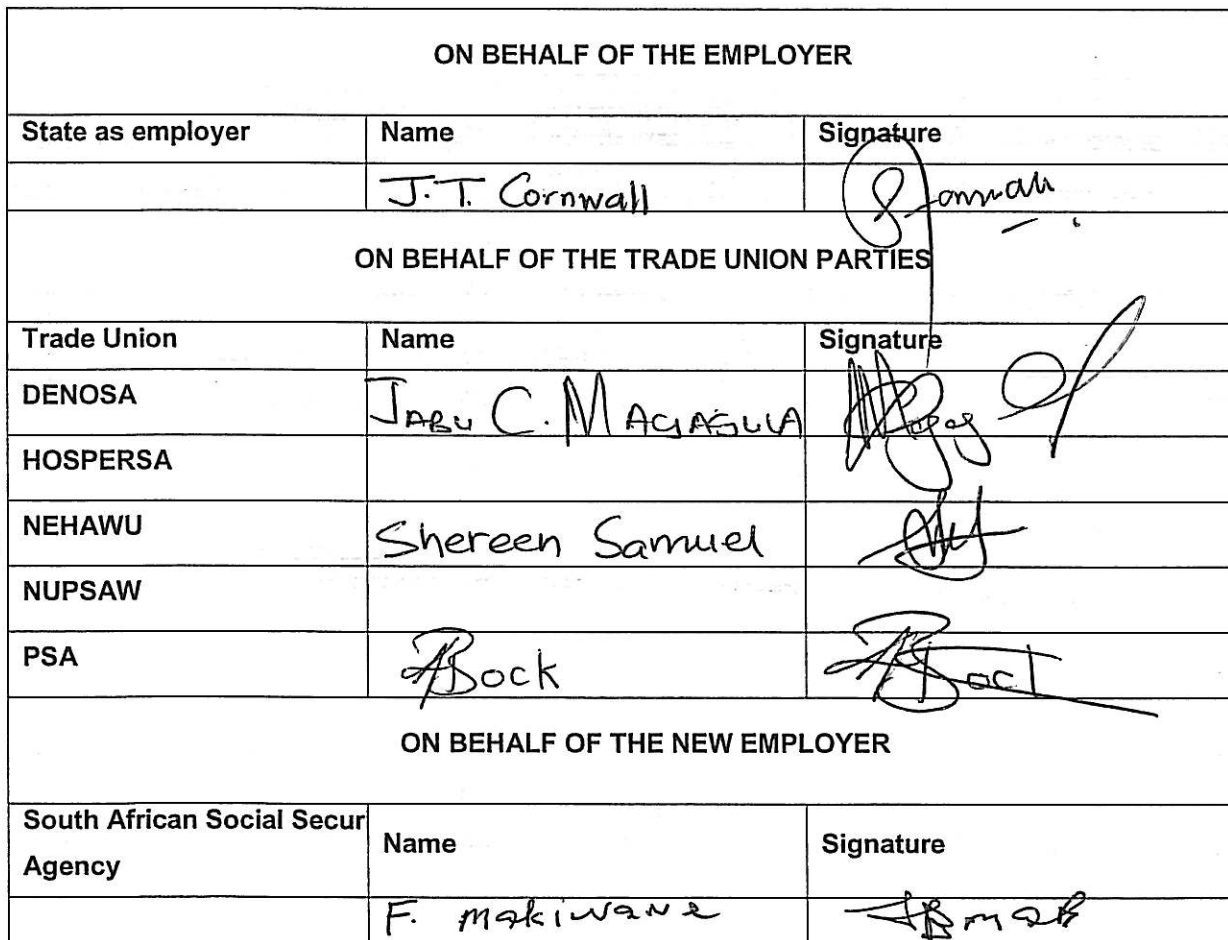 ON BEHALF OF THE EMPLOYER
State as employer Name Signature
J.T. Cornwall
ON BEHALF OF THE TRADE UNION PARTIES
Trade Union Name Signature
DENOSA JABU C. MAGAGULA
HOSPERSA
NEHAWU Shereen Samuel
NUPSAW
PSA Bock
ON BEHALF OF THE NEW EMPLOYER
South African Social Secur
Agency Name Signature
F. Makiwane